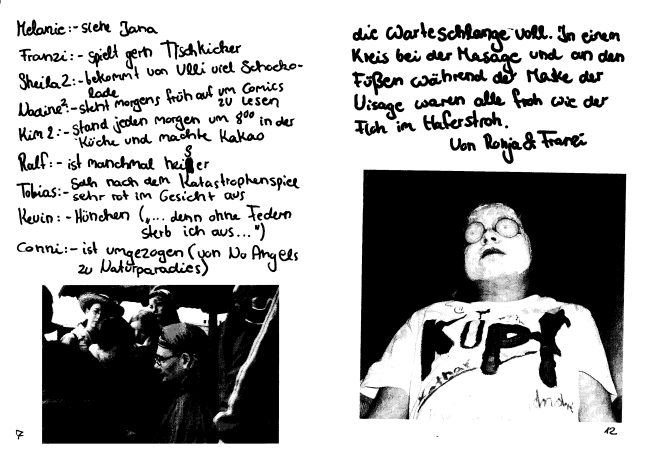 Melanie:- siehe Jana
Franzi:- spielt gern Tischkicker
Sheila2:- bekommt von Ulli viel Schoko-
lade
Nadine²:- steht morgens früh auf um Comics
zu lesen
Kim 2:- stand jeden morgen um 8⁰⁰ in der
Küche und machte Kakao
Ralf:- ist manchmal heiser
Tobias:- Sah nach dem Katastrophenspiel
sehr rot im Gesicht aus
Kevin:- Hünchen („... denn ohne Federn
sterb ich aus...")
Conni:- ist umgezogen (von No Angels
zu Naturparadies)
7
die Warteschlange voll. In einem
Kreis bei der Masage und an den
Füßen während der Maske der
Visage waren alle froh wie der
Floh im Haferstroh.
Von Ronja & Franzi
KUPI
12